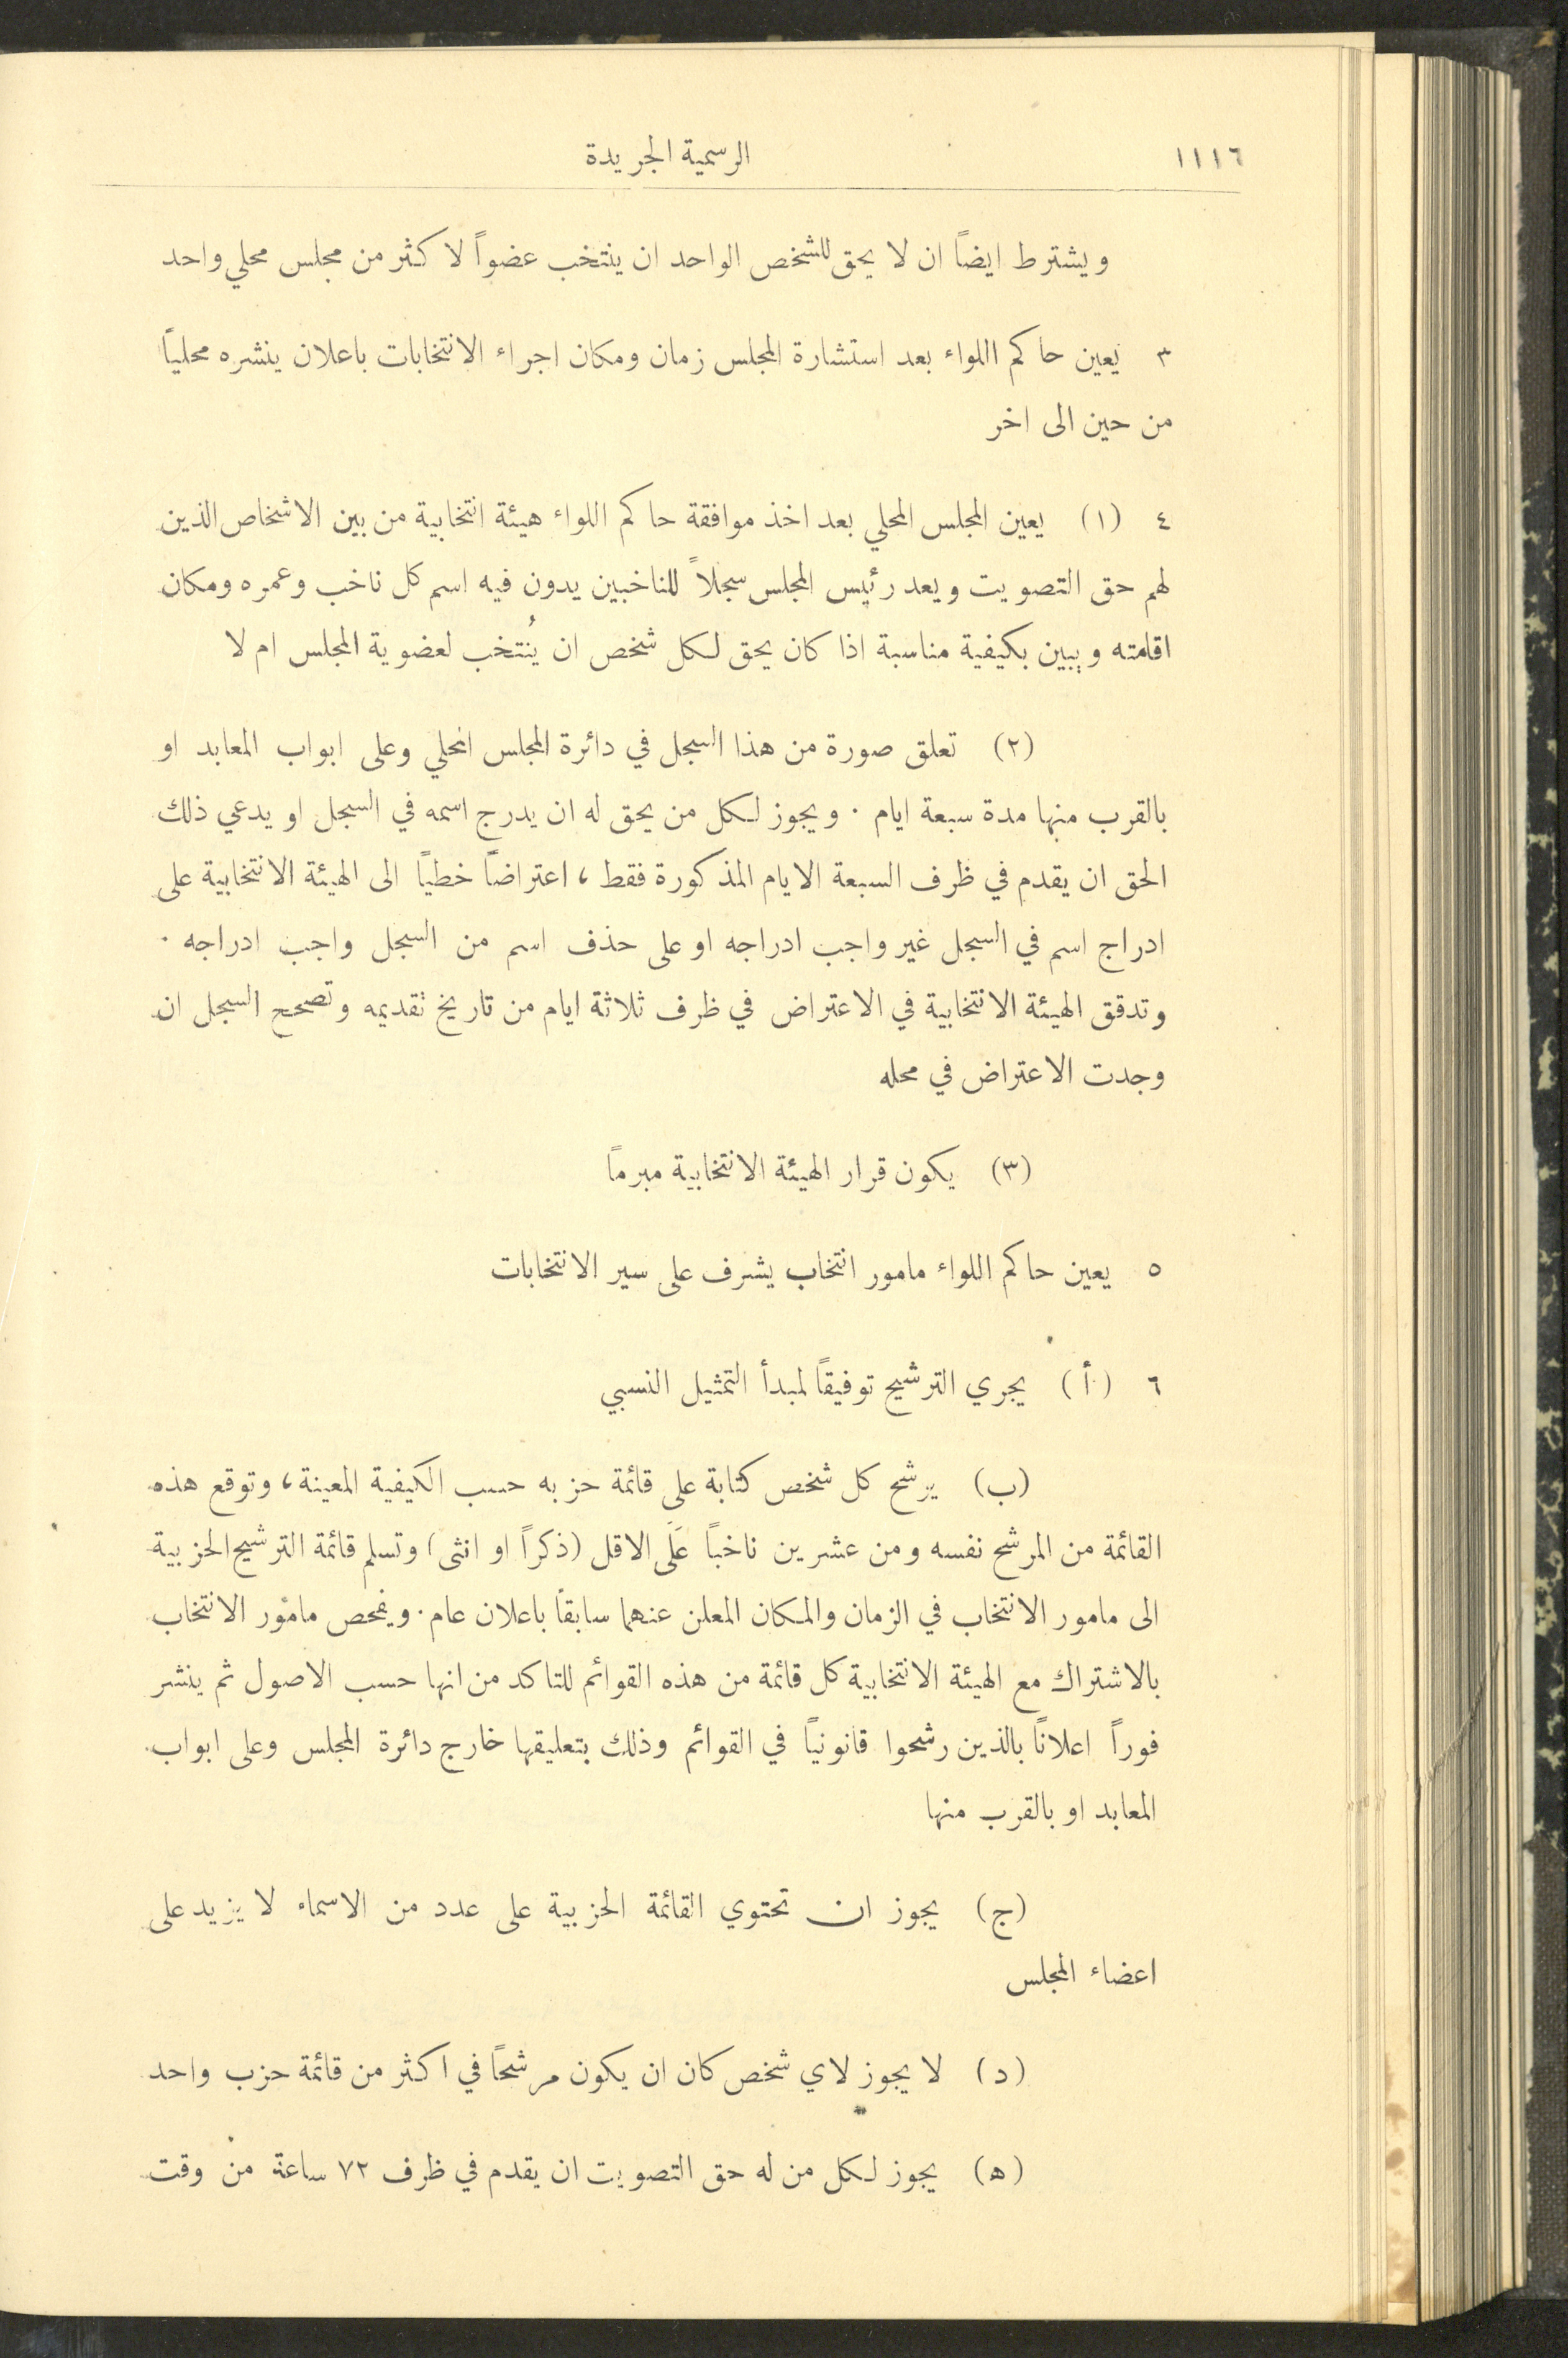 ١١١٦
الرسمية الجريدة
ويشترط ايضاً ان لا يحق للشخص الواحد ان ينتخب عضواً لا كثر من مجلس محلي واحد
٣ يعين حاكم اللواء بعد استشارة المجلس زمان ومكان اجراء الانتخابات باعلان ينشره محلياً
من حين الى اخر
٤ (١) يعين المجلس المحلي بعد اخذ موافقة حاكم اللواء هيئة انتخابية من بين الاشخاص الذين
لهم حق التصويت ويعد رئيس المجلس سجلاً للناخبين يدون فيه اسم كل ناخب وعمره ومكان
اقامته ويبين بكيفية مناسبة اذا كان يحق لكل شخص ان يُنتخب لعضوية المجلس ام لا
(٢) تعلق صورة من هذا السجل في دائرة المجلس المحلي وعلى ابواب المعابد او
بالقرب منها مدة سبعة ايام . ويجوز لكل من يحق له ان يدرج اسمه في السجل او يدعي ذلك
الحق ان يقدم في ظرف السبعة الايام المذكورة فقط ، اعتراضاً خطياً الى الهيئة الانتخابية على
ادراج اسم في السجل غير واجب ادراجه او على حذف اسم من السجل واجب ادراجه .
وتدقق الهيئة الانتخابية في الاعتراض في ظرف ثلاثة ايام من تاريخ تقديمه وتصحح السجل ان
وجدت الاعتراض في محله
(٣) يكون قرار الهيئة الانتخابية مبرماً
٥ يعين حاكم اللواء مامور انتخاب يشرف على سير الانتخابات
٦ (أ) يجري الترشيح توفيقاً لمبدأ التمثيل النسبي
(ب) يرشح كل شخص كتابة على قائمة حزبه حسب الكيفية المعينة ، وتوقع هذه
القائمة من المرشح نفسه ومن عشرين ناخباً عَلَى الاقل (ذكراً او انثى) وتسلم قائمة الترشيح الحزبية
الى مامور الانتخاب في الزمان والمكان المعلن عنهما سابقاً باعلان عام . ويفحص مامور الانتخاب
بالاشتراك مع الهيئة الانتخابية كل قائمة من هذه القوائم للتاكد من انها حسب الاصول ثم ينشر
فوراً اعلاناً بالذين رشحوا قانونياً في القوائم وذلك بتعليقها خارج دائرة المجلس وعلى ابواب
المعابد او بالقرب منها
(ج) يجوز ان تحتوي القائمة الحزبية على عدد من الاسماء لا يزيد على
اعضاء المجلس
(د) لا يجوز لاي شخص كان ان يكون مرشحاً في اكثر من قائمة حزب واحد
(ه) يجوز لكل من له حق التصويت ان يقدم في ظرف ٧٢ ساعة من وقت